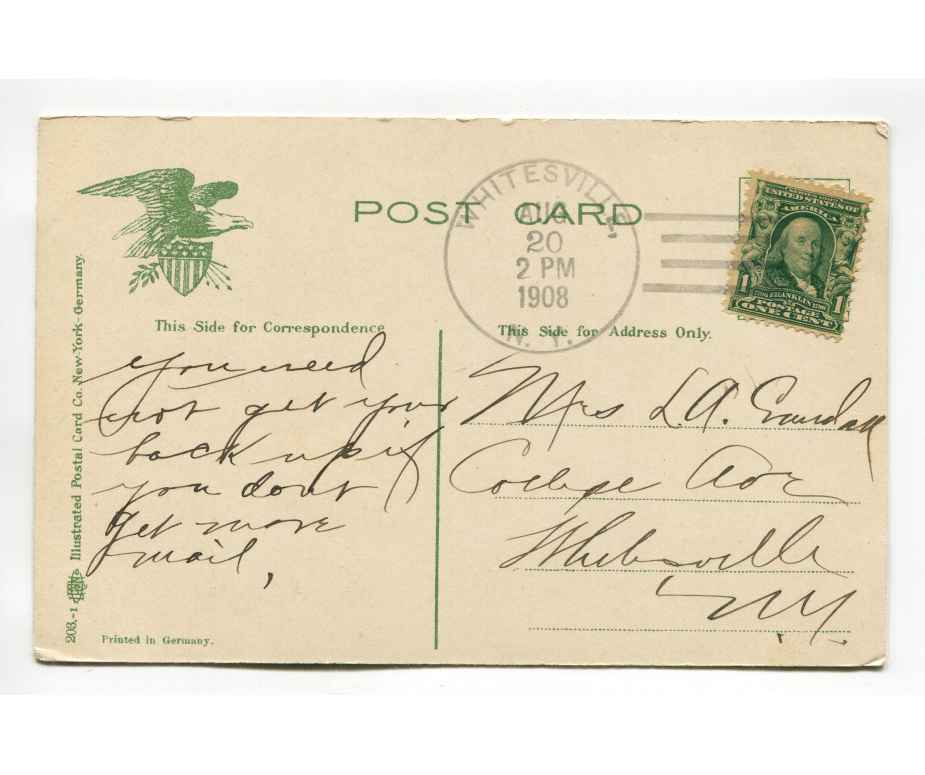 POST CARD
WHITESVILLE,
AUG
20
2 PM
1908
N. Y.
UNITED STATES OF
AMERICA
FRANKLIN
POSTAGE
1 1
ONE CENT
This Side for Correspondence
This Side for Address Only.
you need
not get your
back up if
you dont
get more
mail,
Mrs L.A. Crandall
College Ave
Whitesville
N.Y.
203.-1 Illustrated Postal Card Co. New-York-Germany.
Printed in Germany.